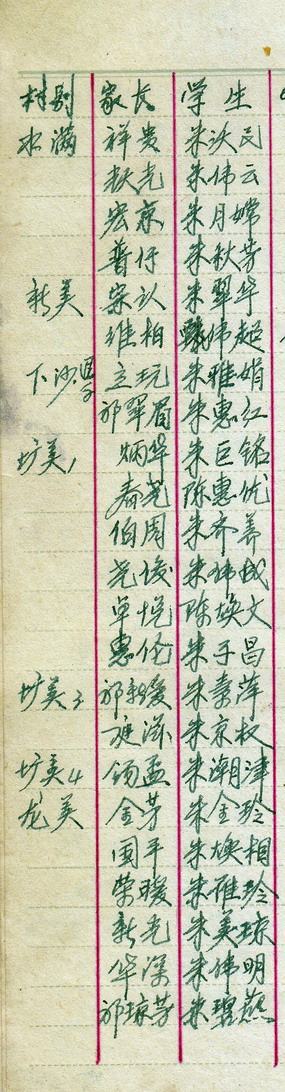 村别 家长 学生
水满 祥贵 朱沃民
秋光 朱伟云
宏京 朱月嫦
普仔 朱秋芳
新美 宗认 朱翠华
维柏 朱伟超
下沙 立玩 朱雅娟
祁翠眉 朱惠红
圹美1 炳华 朱巨铭
春光 陈惠优
伯周 朱齐养
尧俊 朱伟成
卓悦 陈焕文
惠伦 朱于昌
圹美3 祁新爱 朱素萍
朱京权
圹美4 锡孟 朱潮津
龙美 金芳 朱金玲
国平 朱焕相
荣暖 朱雅玲
新光 朱美琼
华深 朱伟明
祁琼芳 朱碧燕